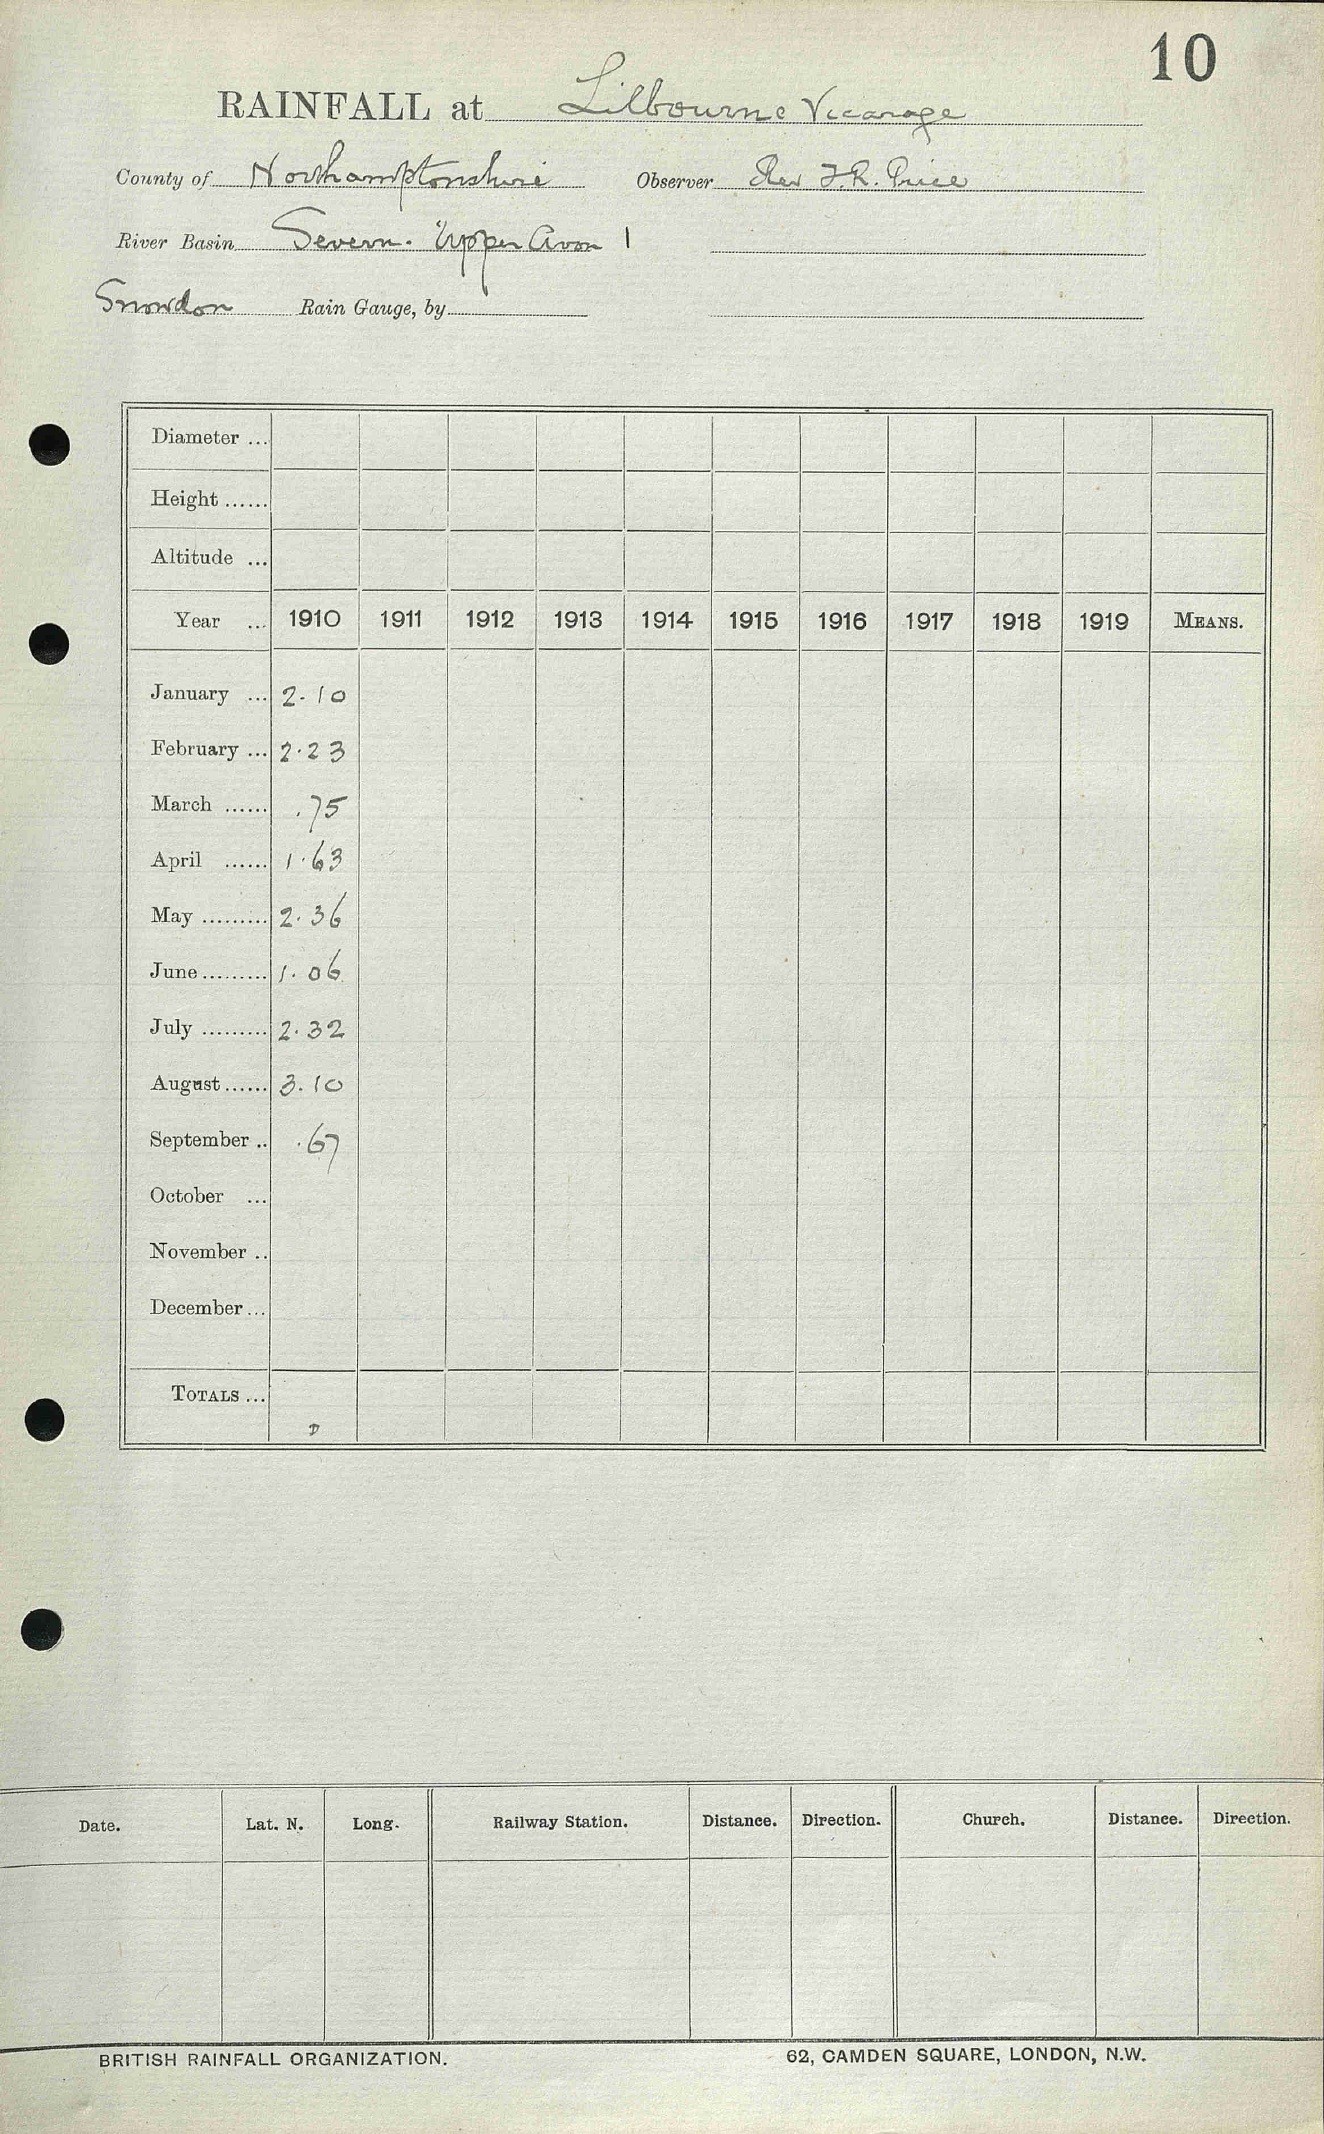 10
RAINFALL at Lilbourne Vicarage
County of Northamptonshire Observer Rev T.R. Price
River Basin Severn. Upper Avon 1
Snowdon Rain Gauge, by
Diameter ...
Height ......
Altitude ...
Year ... 1910 1911 1912 1913 1914 1915 1916 1917 1918 1919 MEANS.
January ... 2.10
February ... 2.23
March ...... .75
April ...... 1.63
May ......... 2.36
June ......... 1.06
July ......... 2.32
August ...... 3.10
September .. .67
October ...
November ..
December ...
TOTALS ...
D
Date. Lat. N. Long. Railway Station. Distance. Direction. Church. Distance. Direction.
BRITISH RAINFALL ORGANIZATION. 62, CAMDEN SQUARE, LONDON, N.W.